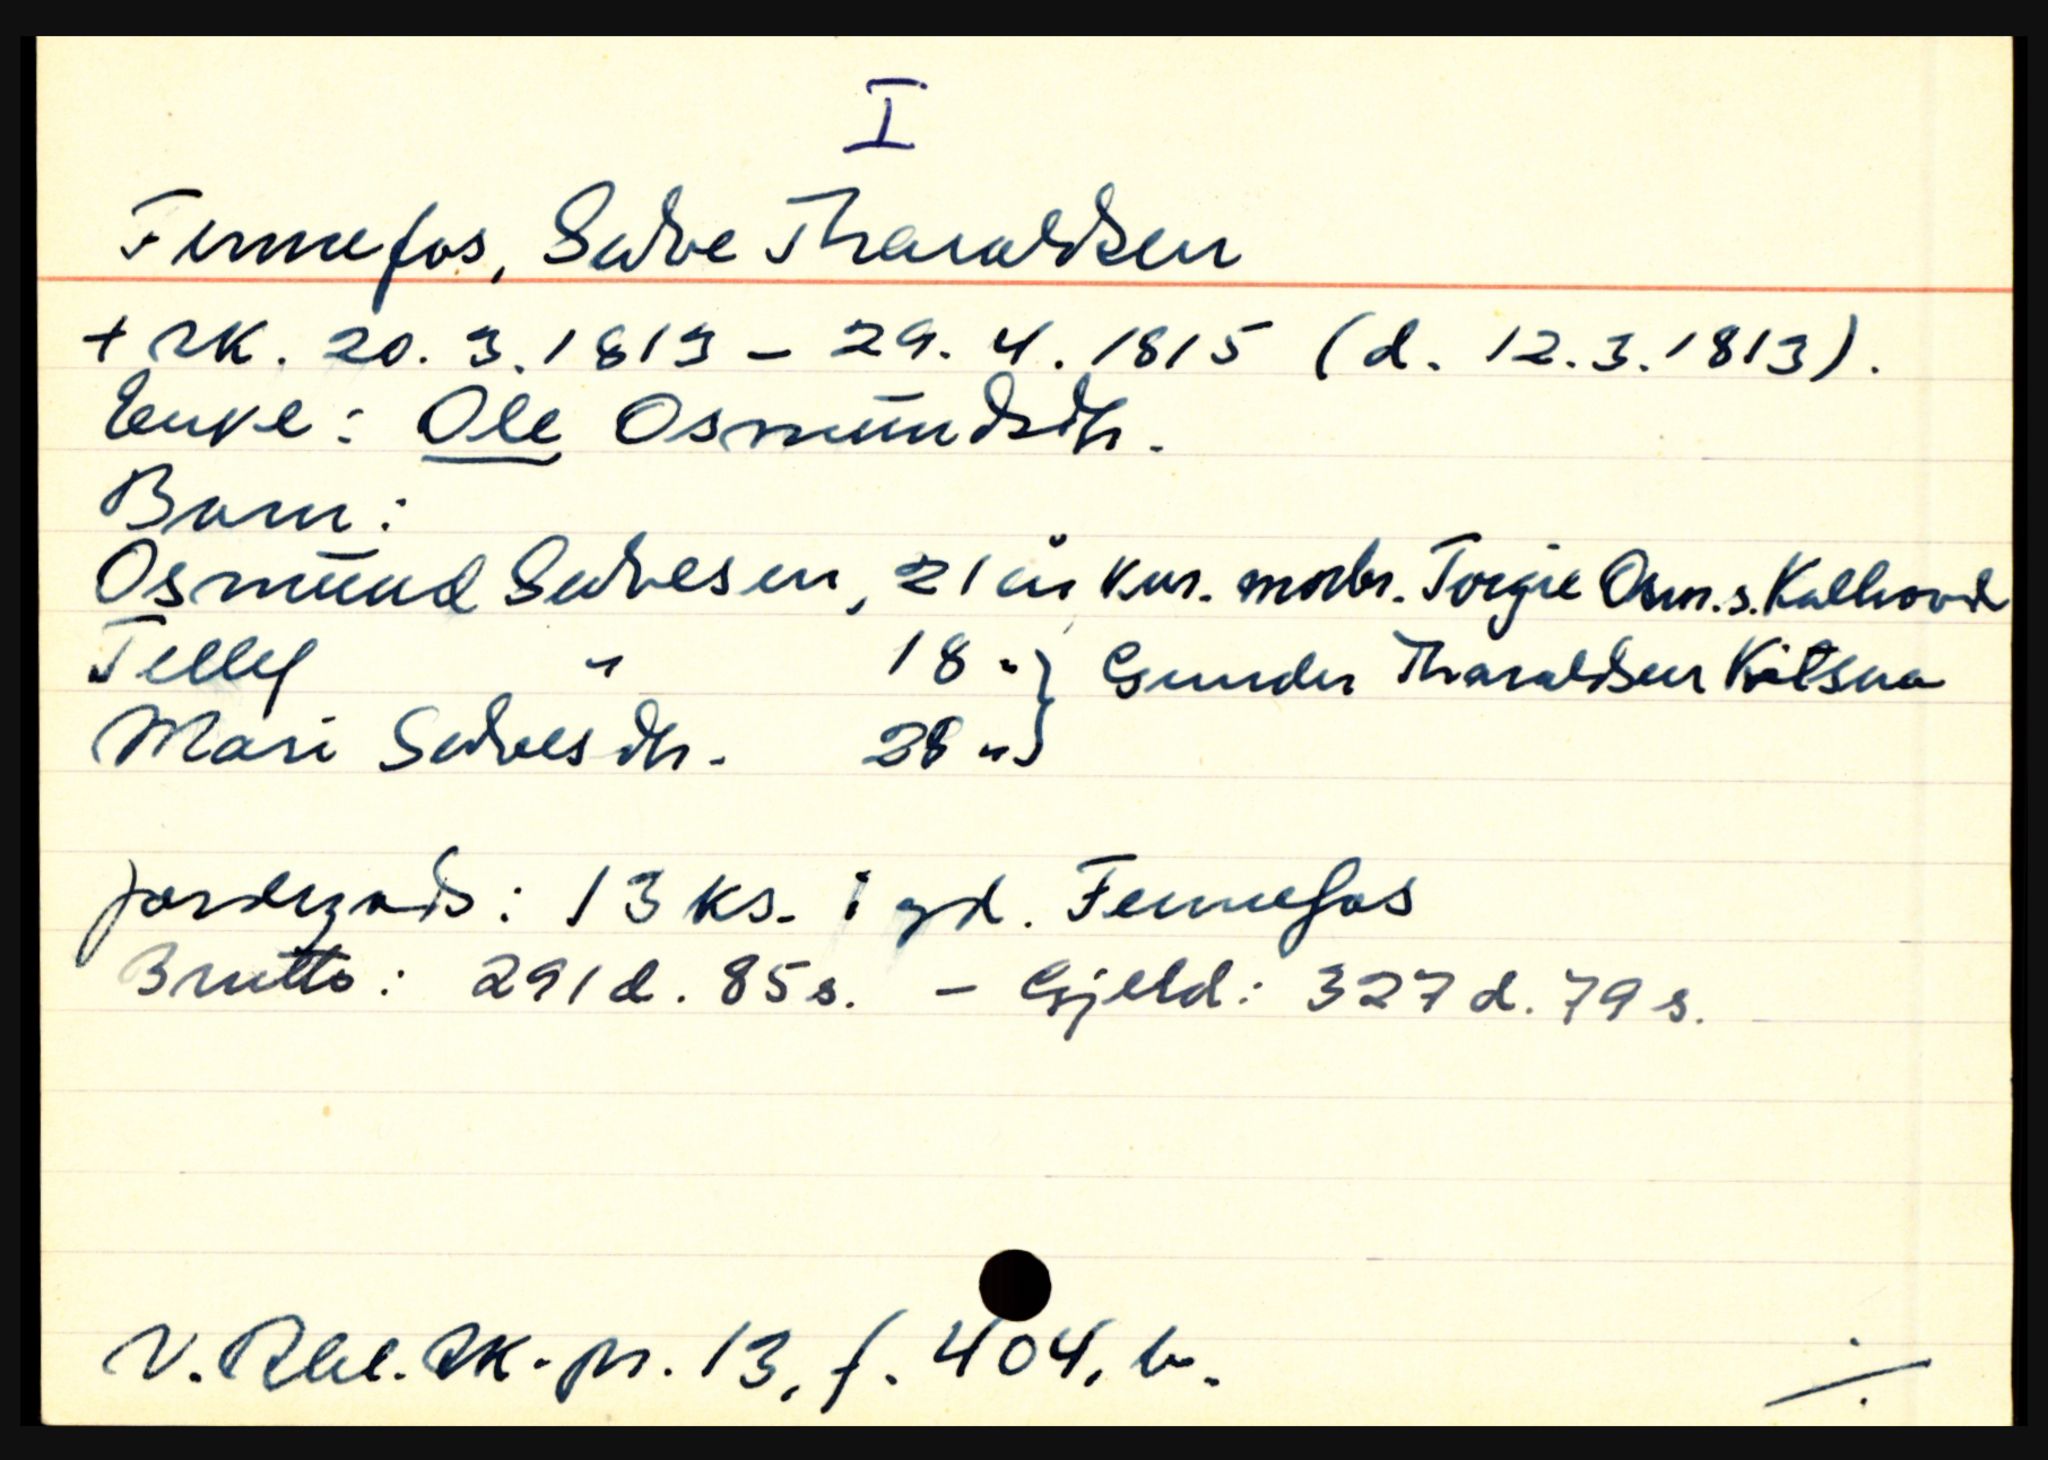 I
Fennefos, Salve Tharaldsen
+ sk. 20.3.1813 - 29.4.1815 (d. 12.3.1813).
Enke: Ole Osmundsdtr.
Barn:
Osmund Salvesen, 21 år kur. morbr. Torgie Osm.s. Kalhovd
Tellef " 18 " } Gunder Tharaldsen Kitsna
Mari Salvesdtr. 28 " }
Jordegods: 13 ks. i gd. Fennefos
Brutto: 291 d. 85 s. - Gjeld: 327 d. 79 s.
V. Rbl. sk. pr. 13, f. 404, b.